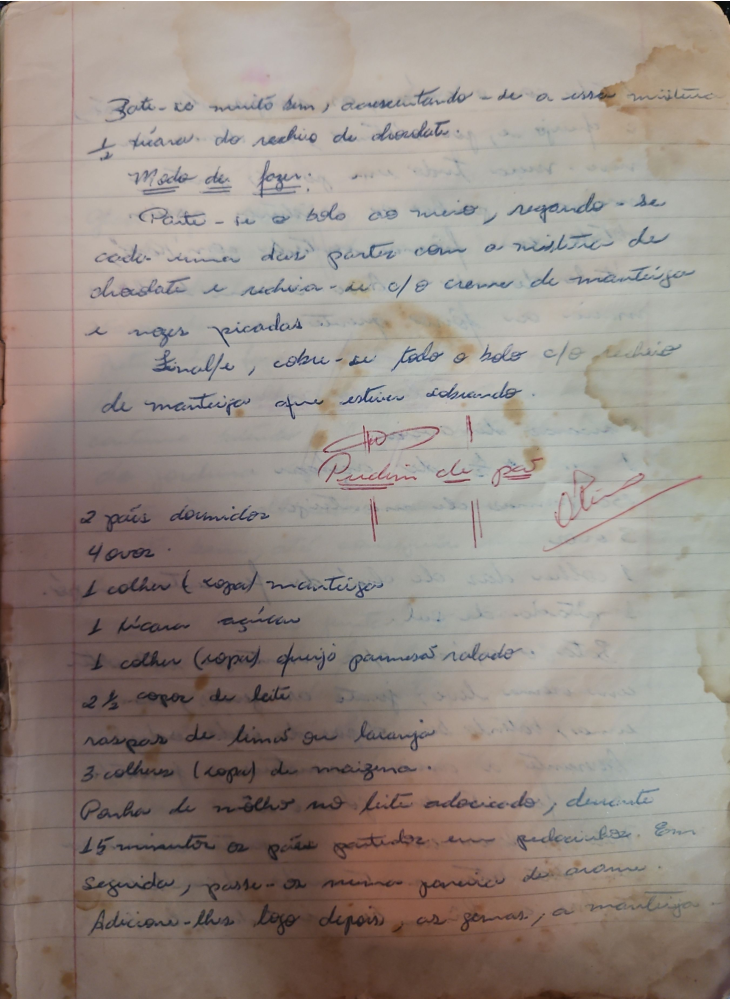 Bate-se muito bem, acrescentando-se a essa mistura
1/2 xícara do recheio de chocolate.
Modo de fazer:
Parte-se o bolo ao meio, regando-se
cada uma das partes com a mistura de
chocolate e recheia-se c/o creme de manteiga
e nozes picadas
Final/e, cobre-se todo o bolo c/o recheio
de manteiga que estiver sobrando.
Pudim de pão
2 pães dormidos
4 ovos.
1 colher (sopa) manteiga
1 xícara açúcar
1 colher (sopa) queijo parmesão ralado.
2 1/2 copos de leite
raspas de limão ou laranja
3 colheres (sopa) de maizena.
Ponha de môlho no leite adocicado, durante
15 minutos os pães partidos em pedacinhos. Em
seguida, passe-os numa peneira de arame.
Adicione-lhes logo depois, as gemas, a manteiga